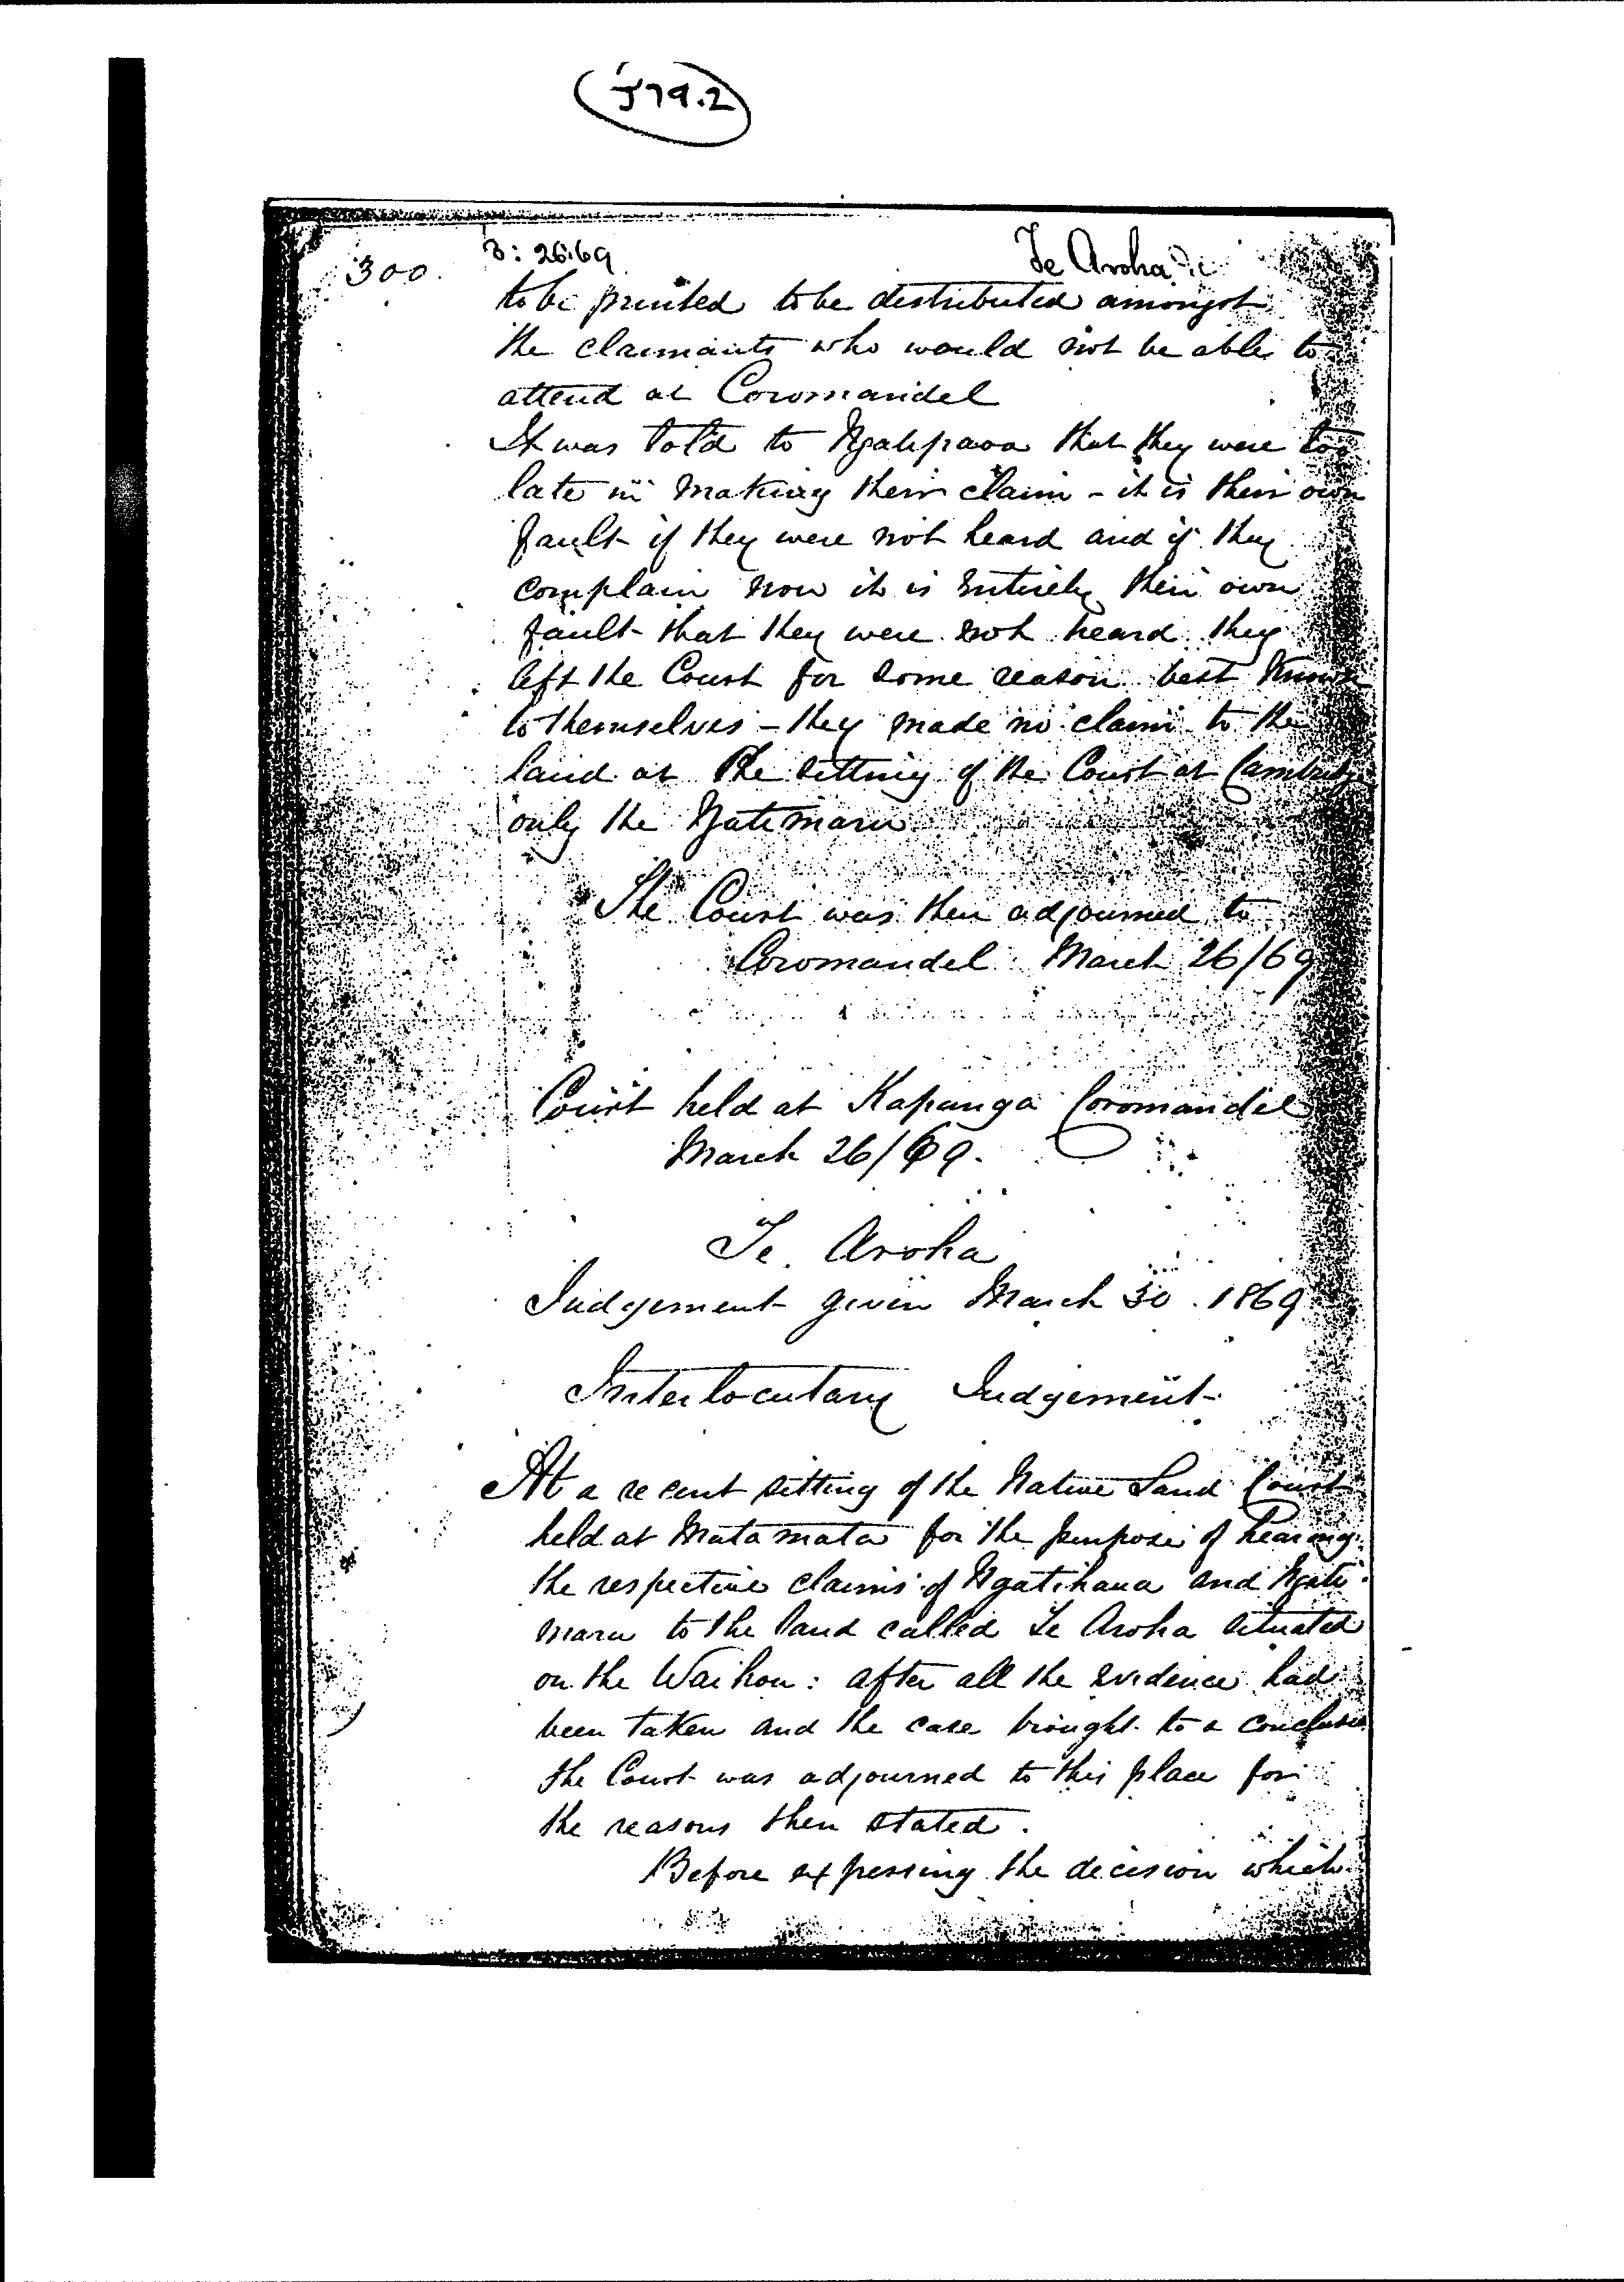 J79.2
300. 3:26.69 Te Aroha
to be printed to be distributed amongst
the claimants who would not be able to
attend at Coromandel
It was told to Ngatipaoa that they were too
late in making their claim - it is their own
fault if they were not heard and if they
complain now it is entirely their own
fault that they were not heard they
left the Court for some reason best known
to themselves - they made no claim to the
land at the sitting of the Court at Cambridge
only the Ngatimaru
The Court was then adjourned to
Coromandel March 26/69
Court held at Kapanga Coromandel
March 26/69.
Te Aroha
Judgement given March 30. 1869
Interlocutary Judgement
At a recent sitting of the Native Land Court
held at Matamata for the purpose of hearing
the respective claims of Ngatihaua and Ngati
maru to the land called Te Aroha situated
on the Waihou: after all the evidence had
been taken and the case brought to a conclusion
the Court was adjourned to this place for
the reasons then stated.
Before expressing the decision which